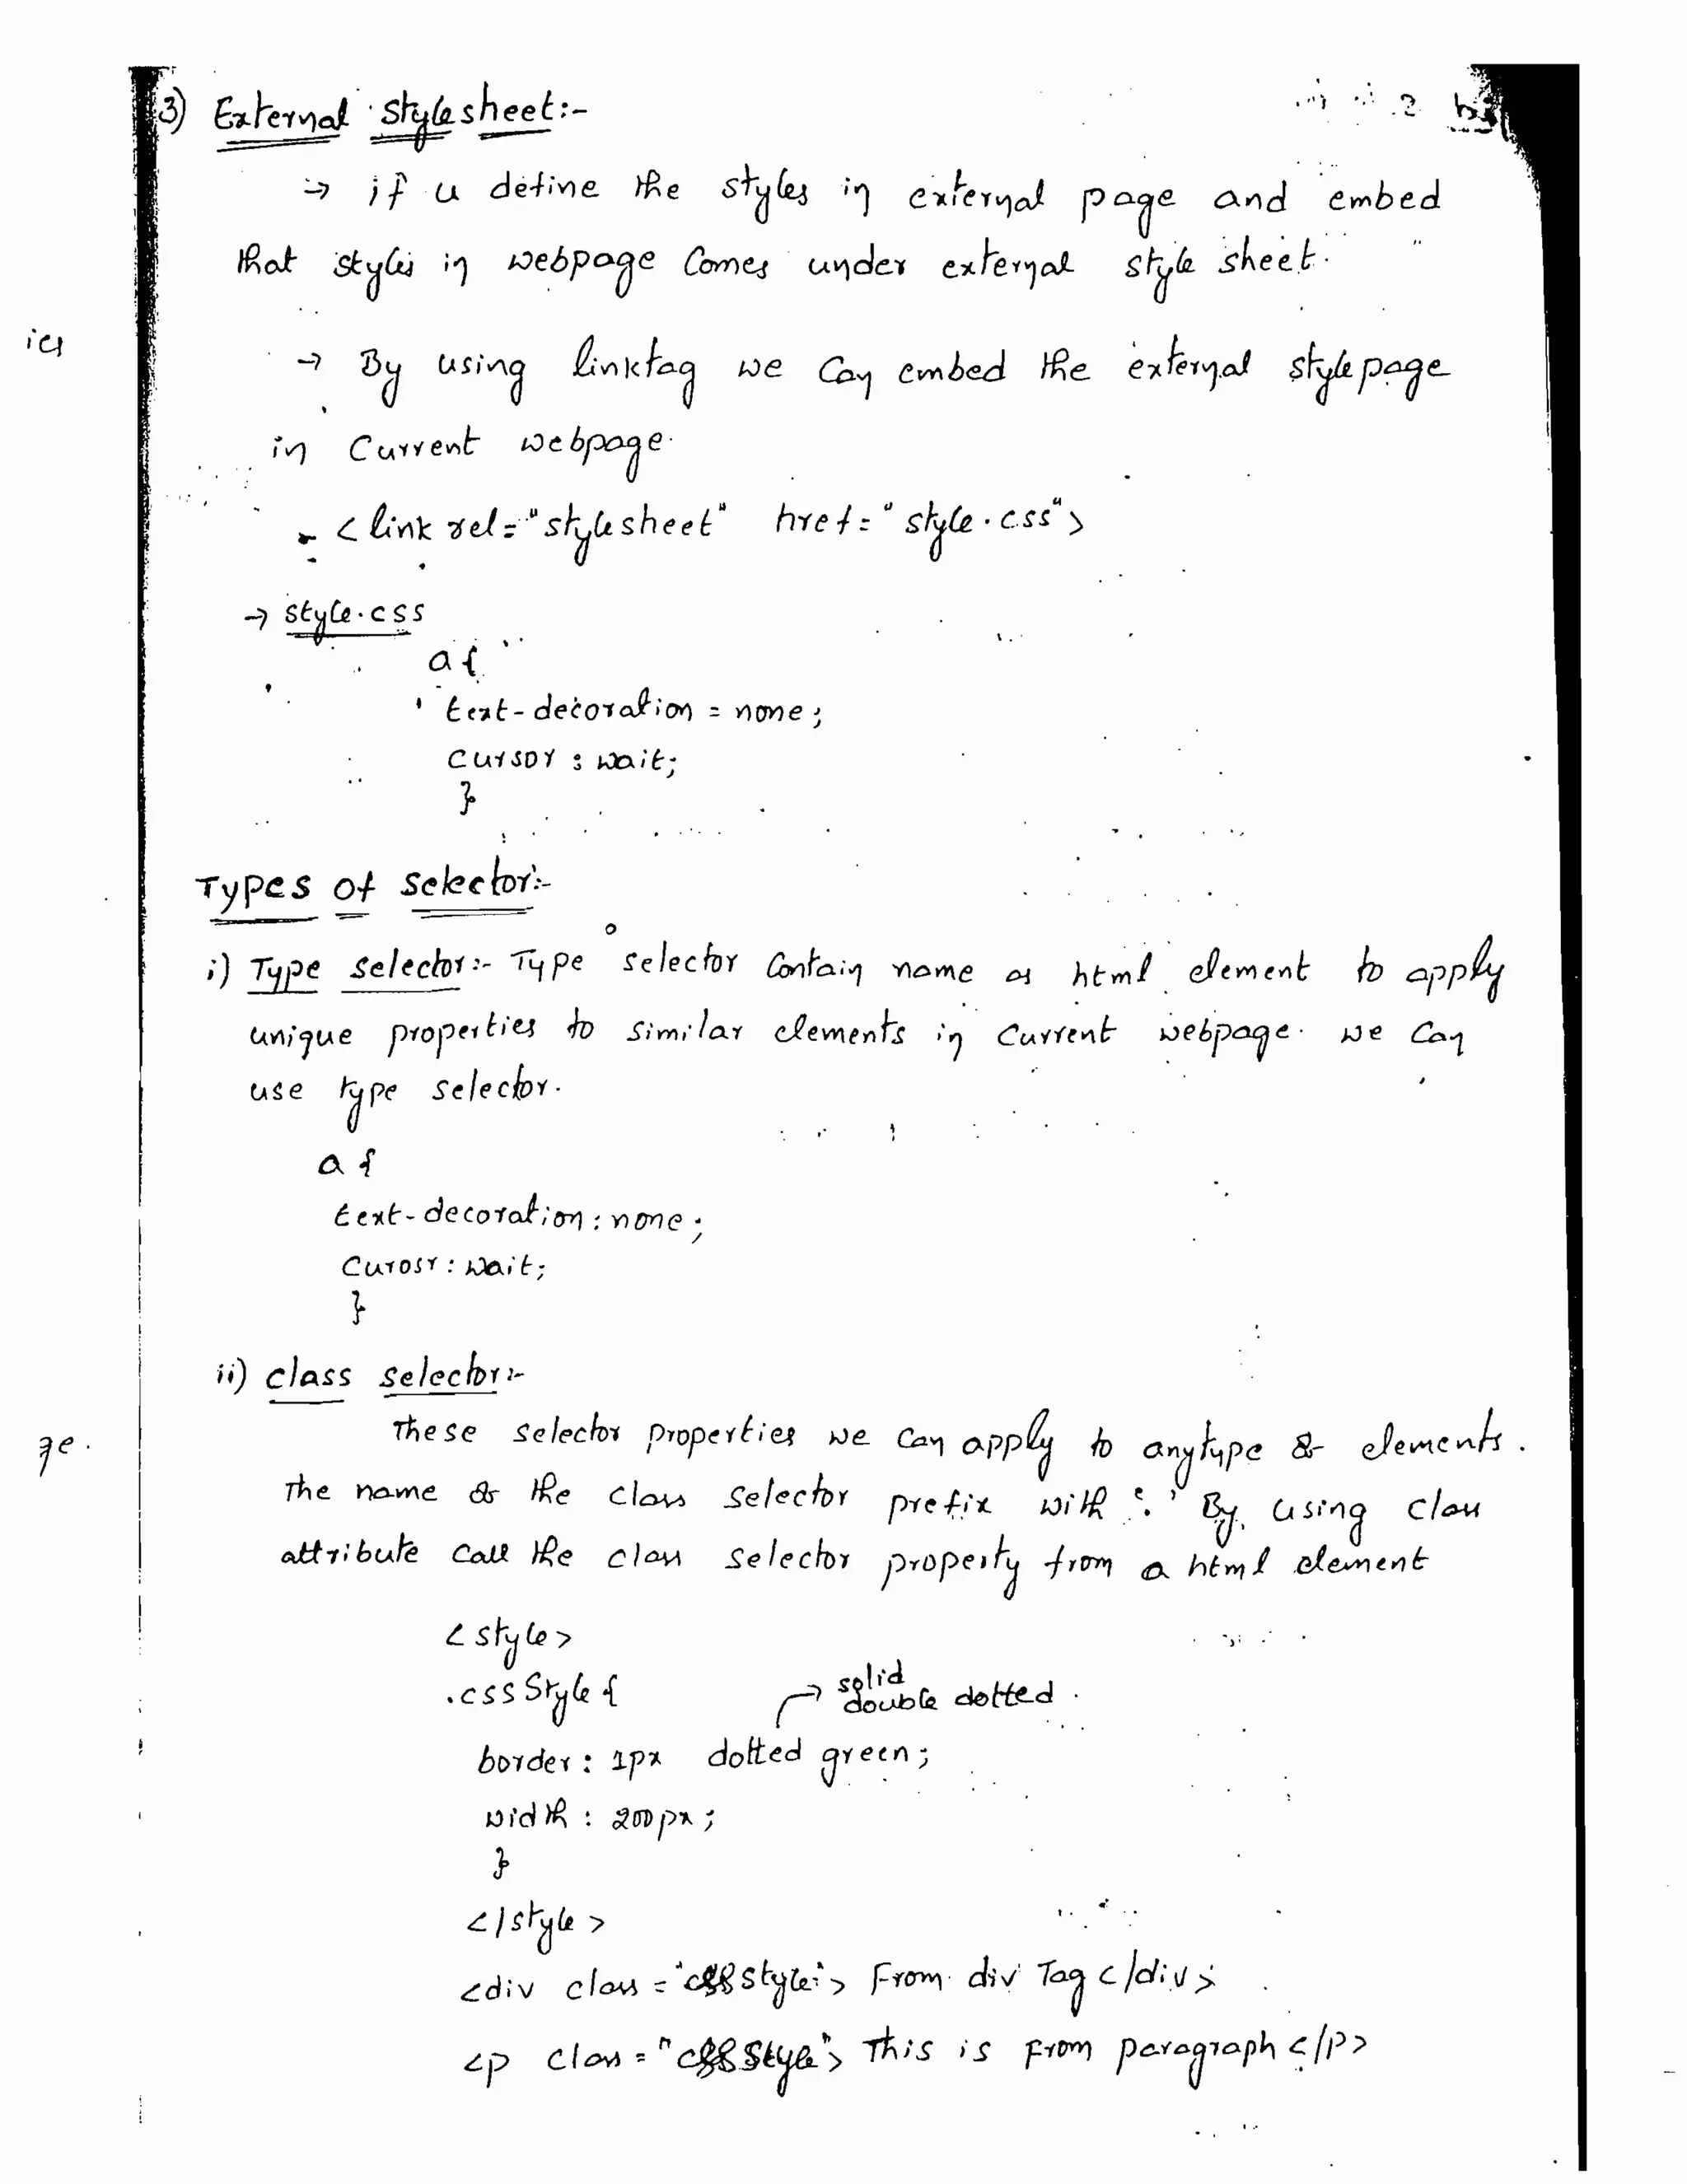 3) External stylesheet:-
→ if u define the styles in external page and embed
that styles in webpage Comes under external style sheet.
ies
→ By using linktag we can embed the external style page
in Current webpage.
- <link rel="stylesheet" href="style.css">
→ style.css
a{
text-decoration = none;
cursor : wait;
}
Types of selector:-
i) Type selector:- Type selector Contain name as html element to apply
unique properties to similar elements in Current webpage. we can
use type selector.
a {
text-decoration : none ;
Curosr : wait;
}
ii) class selector:-
These selector properties we can apply to anytype of elements.
ge.
The name of the class selector prefix with '.' By using class
attribute call the class selector property from a html element
<style>
.cssStyle {
→ solid
double dotted.
border : 1px dotted green ;
width : 200px ;
}
</style>
<div class = "cssstyle"> From div Tag </div>
<p class = "cssStyle"> This is From paragraph </p>